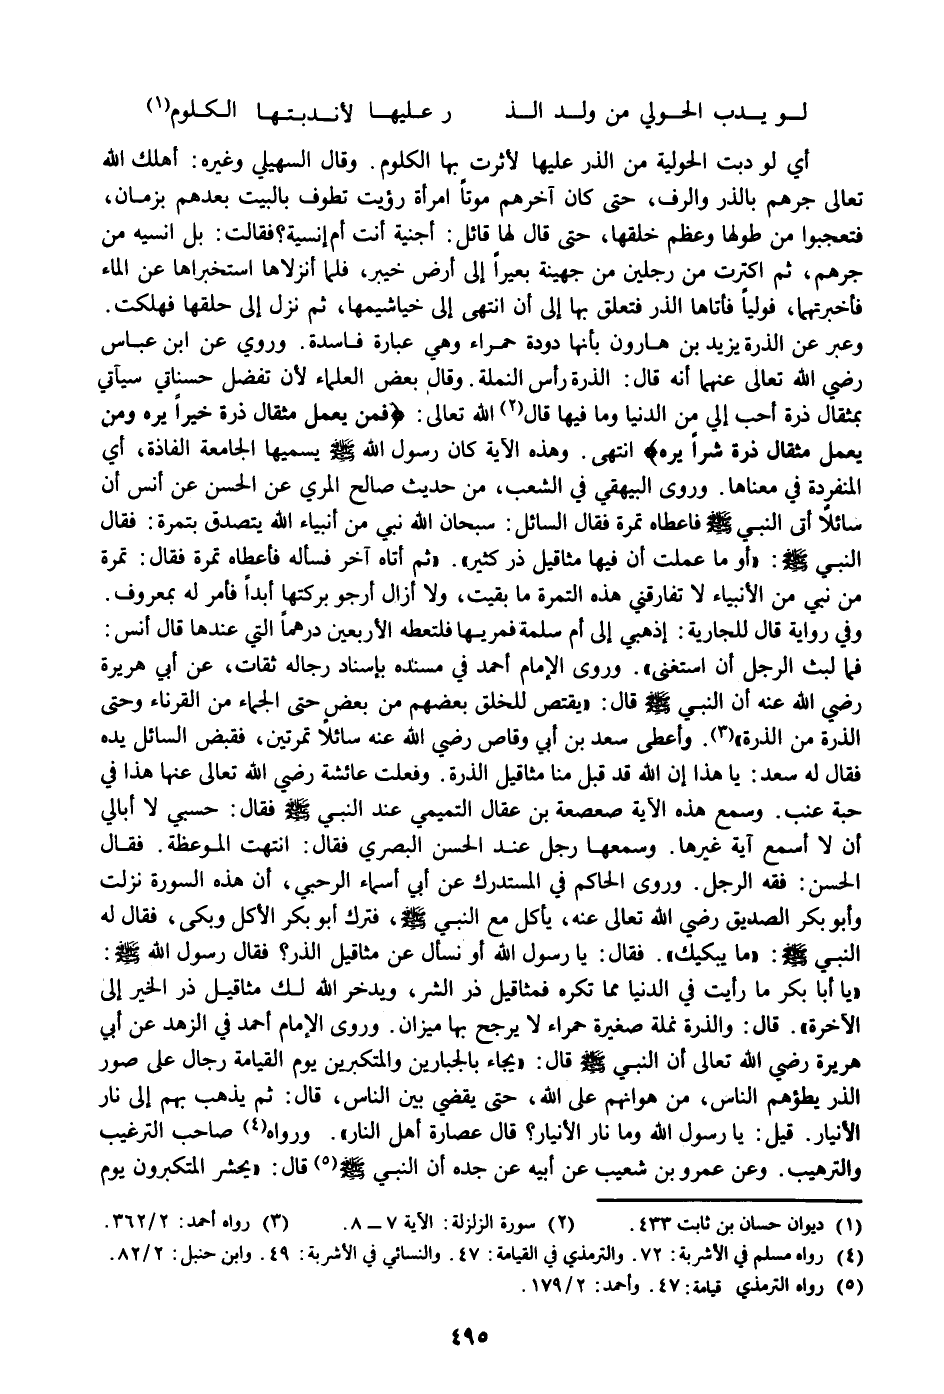 لـو يـدب الحـولي من ولـد الـذ ر عليهـا لأنـدبتـهـا الـكـلوم(١)
أي لو دبت الحولية من الذر عليها لأثرت بها الكلوم. وقال السهيلي وغيره: أهلك الله
تعالى جرهم بالذر والرف، حتى كان آخرهم موتاً امرأة رؤيت تطوف بالبيت بعدهم بزمان،
فتعجبوا من طولها وعظم خلقها، حتى قال لها قائل: أجنية أنت أم إنسية؟ فقالت: بل انسيه من
جرهم، ثم اكترت من رجلين من جهينة بعيراً إلى أرض خيبر، فلما أنزلاها استخبراها عن الماء
فأخبرتهما، فولياً فأتاها الذر فتعلق بها إلى أن انتهى إلى خياشيمها، ثم نزل إلى حلقها فهلكت.
وعبر عن الذرة يزيد بن هارون بأنها دودة حمراء وهي عبارة فاسدة. وروي عن ابن عباس
رضي الله تعالى عنهما أنه قال: الذرة رأس النملة. وقال بعض العلماء لأن تفضل حسناتي سيآتي
بمثقال ذرة أحب إلي من الدنيا وما فيها قال(٢) الله تعالى: ﴿فمن يعمل مثقال ذرة خيراً يره ومن
يعمل مثقال ذرة شراً يره﴾ انتهى. وهذه الآية كان رسول الله ﷺ يسميها الجامعة الفاذة، أي
المنفردة في معناها. وروى البيهقي في الشعب، من حديث صالح المري عن الحسن عن أنس أن
سائلاً أتى النبـي ﷺ فاعطاه تمرة فقال السائل: سبحان الله نبي من أنبياء الله يتصدق بتمرة: فقال
النبـي ﷺ: «أو ما عملت أن فيها مثاقيل ذر كثير». «ثم أتاه آخر فسأله فأعطاه تمرة فقال: تمرة
من نبي من الأنبياء لا تفارقني هذه التمرة ما بقيت، ولا أزال أرجو بركتها أبداً فأمر له بمعروف.
وفي رواية قال للجارية: إذهبي إلى أم سلمة فمريـها فلتعطه الأربعين درهماً التي عندها قال أنس:
فما لبث الرجل أن استغنى». وروى الإمام أحمد في مسنده بإسناد رجاله ثقات، عن أبي هريرة
رضي الله عنه أن النبـي ﷺ قال: «يقتص للخلق بعضهم من بعض حتى الجماء من القرناء وحتى
الذرة من الذرة»(٣). وأعطى سعد بن أبي وقاص رضي الله عنه سائلاً تمرتين، فقبض السائل يده
فقال له سعد: يا هذا إن الله قد قبل منا مثاقيل الذرة. وفعلت عائشة رضي الله تعالى عنها هذا في
حبة عنب. وسمع هذه الآية صعصعة بن عقال التميمي عند النبـي ﷺ فقال: حسبي لا أبالي
أن لا أسمع آية غيرها. وسمعهـا رجل عنـد الحسن البصري فقال: انتهت المـوعظة. فقـال
الحسن: فقه الرجل. وروى الحاكم في المستدرك عن أبي أسماء الرحبي، أن هذه السورة نزلت
وأبو بكر الصديق رضي الله تعالى عنه، يأكل مع النبـي ﷺ، فترك أبو بكر الأكل وبكى، فقال له
النبـي ﷺ: «ما يبكيك». فقال: يا رسول الله أو نسأل عن مثاقيل الذر؟ فقال رسول الله ﷺ:
«يا أبا بكر ما رأيت في الدنيا مما تكره فمثاقيل ذر الشر، ويدخر الله لـك مثاقيـل ذر الخير إلى
الآخرة». قال: والذرة نملة صغيرة حمراء لا يرجح بها ميزان. وروى الإمام أحمد في الزهد عن أبي
هريرة رضي الله تعالى أن النبـي ﷺ قال: «يجاء بالجبارين والمتكبرين يوم القيامة رجال على صور
الذر يطؤهم الناس، من هوانهم على الله، حتى يقضي بين الناس، قال: ثم يذهب بهم إلى نار
الأنيار. قيل: يا رسول الله وما نار الأنيار؟ قال عصارة أهل النار». ورواه(٤) صاحب الترغيب
والترهيب. وعن عمرو بن شعيب عن أبيه عن جده أن النبـي ﷺ(٥) قال: «يحشر المتكبرون يوم
(١) ديوان حسان بن ثابت ٤٣٣. (٢) سورة الزلزلة: الآية ٧ ــ ٨. (٣) رواه أحمد: ٣٦٢/٢.
(٤) رواه مسلم في الأشربة: ٧٢. والترمذي في القيامة: ٤٧. والنسائي في الأشربة: ٤٩. وابن حنبل: ٨٢/٢.
(٥) رواه الترمذي قيامة: ٤٧. وأحمد: ١٧٩/٢.
٤٩٥